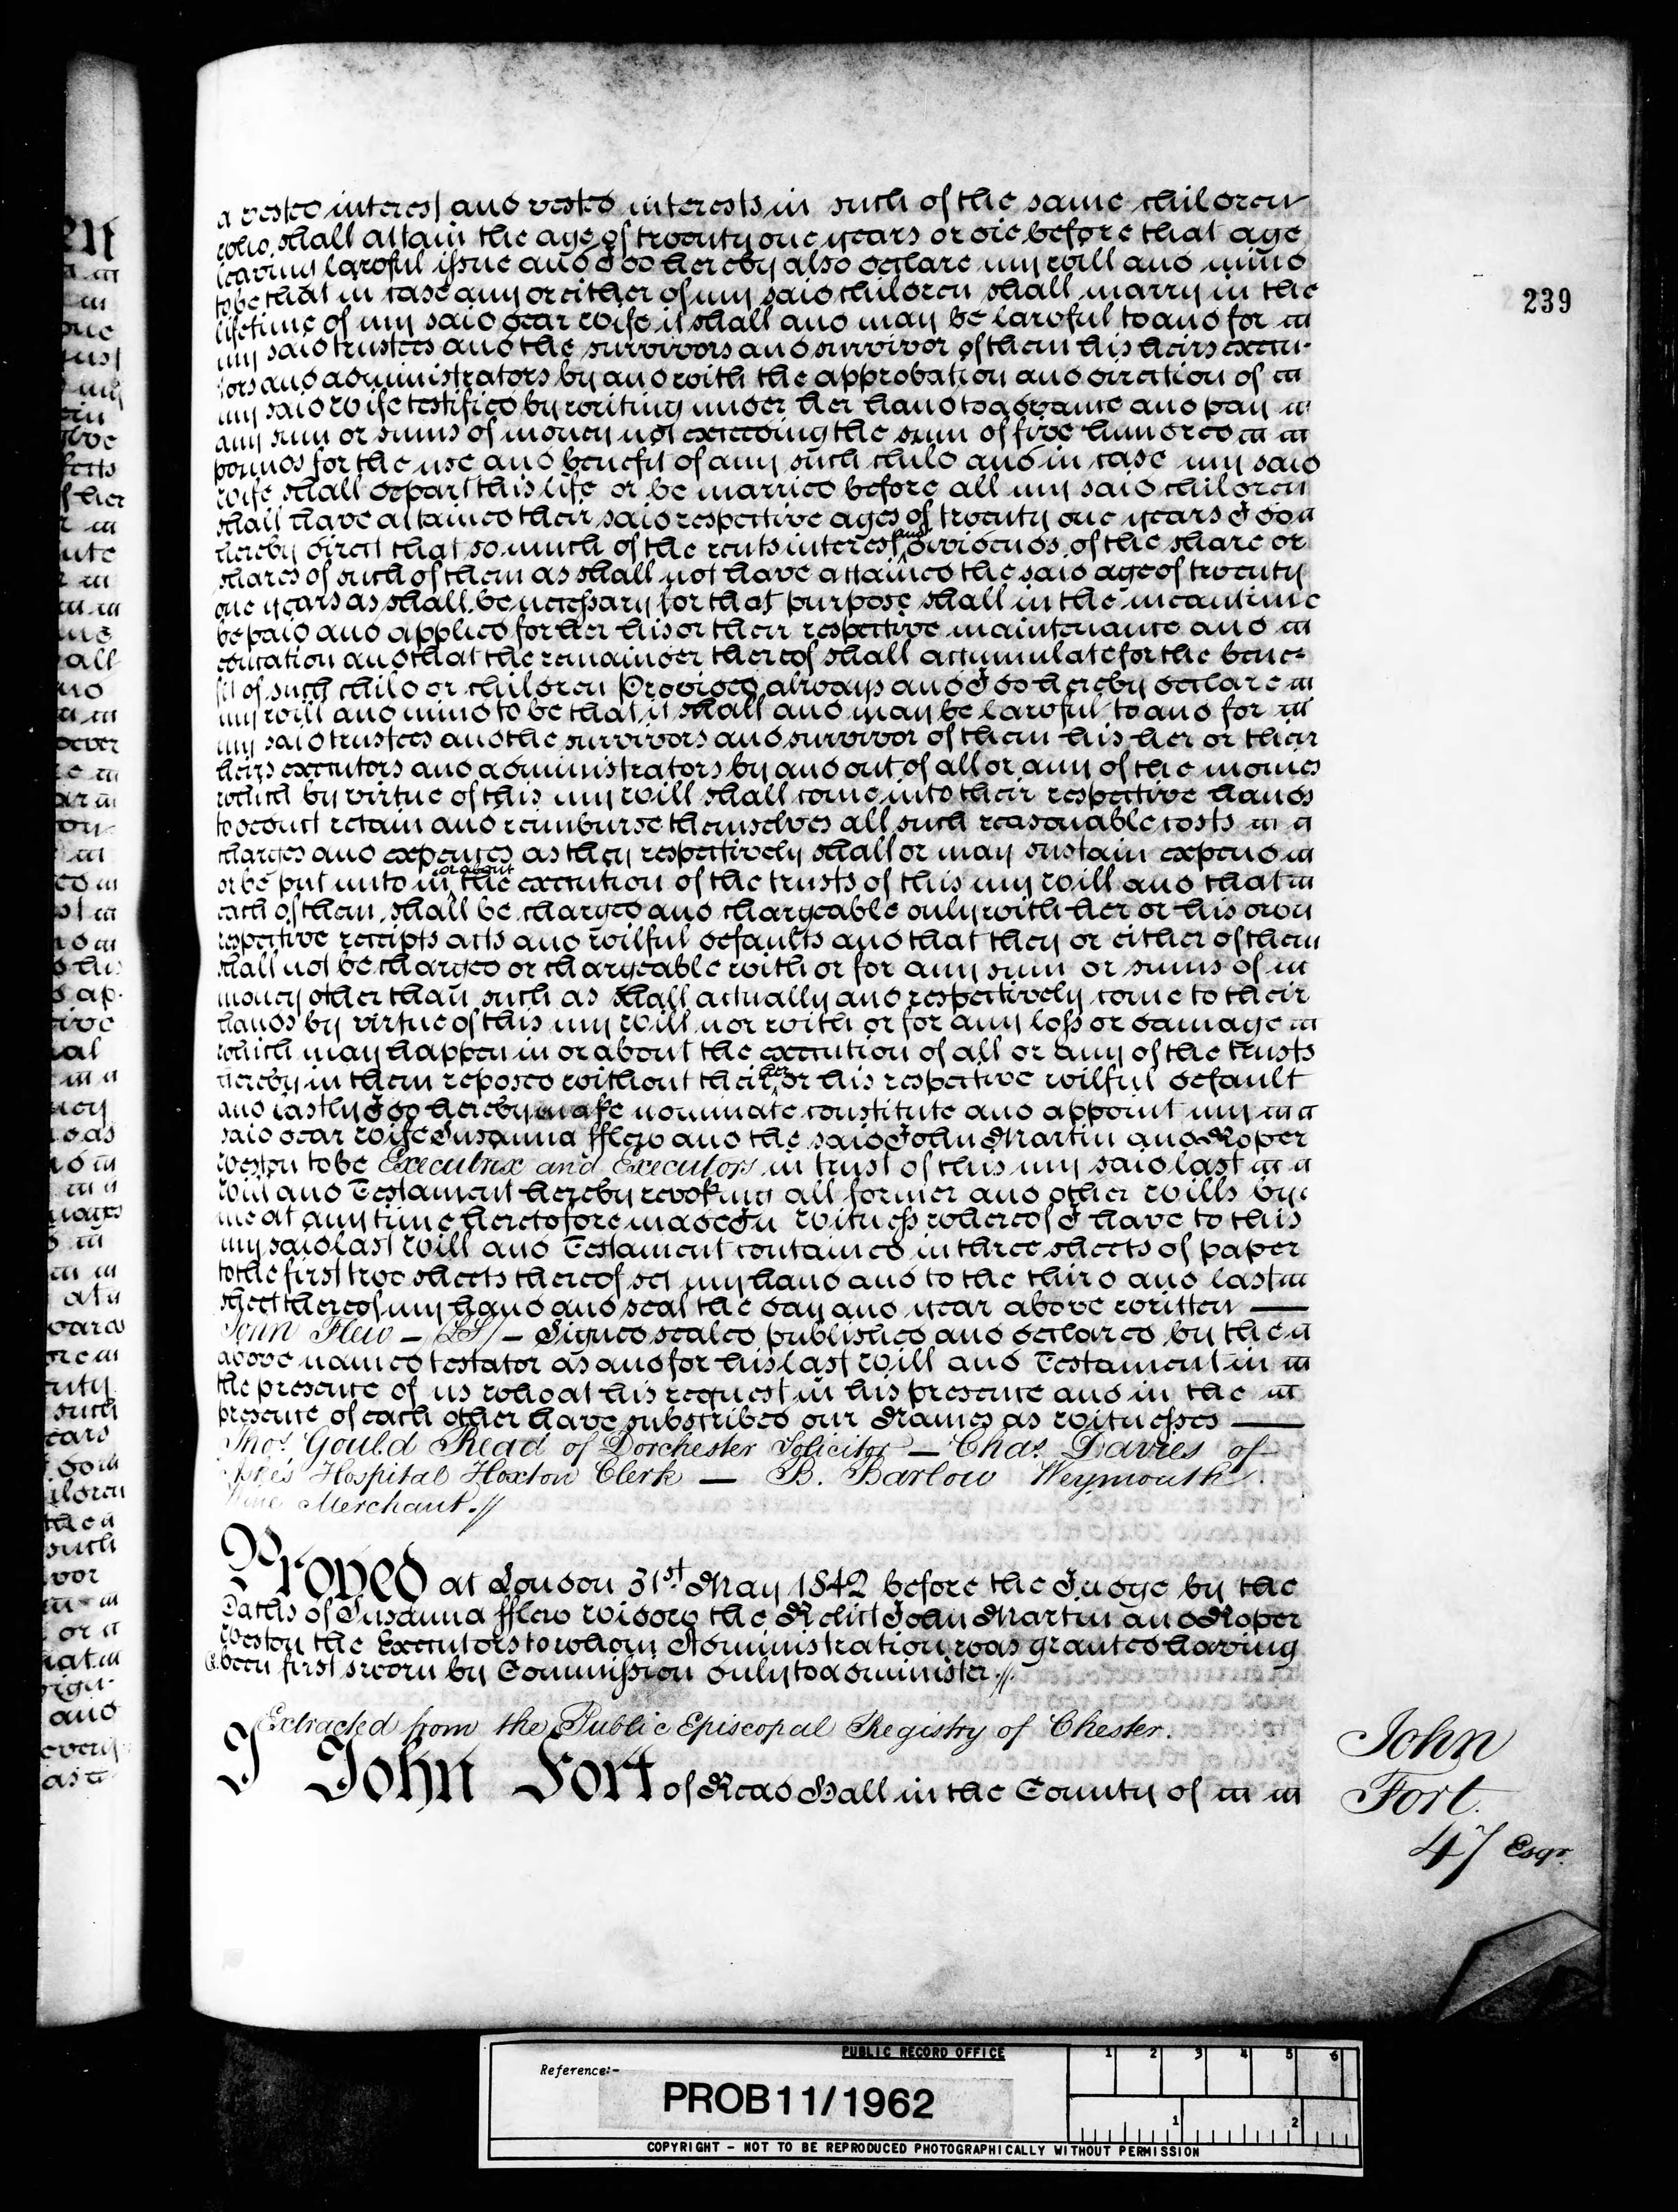 a vested interest and vested interests in such of the same children
who shall attain the age of twenty one years or die before that age
leaving lawful issue and I do hereby also declare my will and mind
to be that in case any or either of my said children shall marry in the
lifetime of my said dear wife it shall and may be lawful to and for
my said trustees and the survivors and survivor of them his heirs execu-
tors and administrators by and with the approbation and direction of
my said wife testified by writing under her hand to advance and pay
any sum or sums of money not exceeding the sum of five hundred
pounds for the use and benefit of any such child and in case my said
wife shall depart this life or be married before all my said children
shall have attained their said respective ages of twenty one years I do
hereby direct that so much of the rents interest and dividends of the share or
shares of such of them as shall not have attained the said age of twenty
one years as shall be necessary for that purpose shall in the meantime
be paid and applied for her his or their respective maintenance and
education and that the remainder thereof shall accumulate for the bene-
fit of such child or children Provided always and I do hereby declare
my will and mind to be that it shall and may be lawful to and for
my said trustees and the survivors and survivor of them his her or their
heirs executors and administrators by and out of all or any of the monies
which by virtue of this my will shall come into their respective hands
to deduct retain and reimburse themselves all such reasonable costs
charges and expences as they respectively shall or may sustain expend
or be put unto in or about the execution of the trusts of this my will and that
each of them shall be charged and chargeable only with her or his own
respective receipts acts and wilful defaults and that they or either of them
shall not be charged or chargeable with or for any sum or sums of
money other than such as shall actually and respectively come to their
hands by virtue of this my will nor with or for any loss or damage
which may happen in or about the execution of all or any of the trusts
hereby in them reposed without their her or his respective wilful default
and lastly I do hereby make nominate constitute and appoint my
said dear wife Susanna fflew and the said John Martin and Roper
Weston to be Executrix and Executors in trust of this my said last
will and Testament hereby revoking all former and other wills by
me at any time heretofore made In Witness whereof I have to this
my said last Will and Testament contained in three sheets of paper
to the first two sheets thereof set my hand and to the third and last
sheet thereof my hand and seal the day and year above written —
John Flew – LS – Signed sealed published and declared by the
above named testator as and for his last Will and Testament in
the presence of us who at his request in his presence and in the
presence of each other have subscribed our Names as witnesses —
Thos. Gould Read of Dorchester Solicitor — Chas. Davies of
Aske's Hospital Hoxton Clerk — B. Barlow Weymouth
Wine Merchant.//
Proved at London 31st. May 1842 before the Judge by the
Oaths of Susanna fflew widow the Relict John Martin and Roper
Weston the Executors to whom Administration was granted having
been first sworn by Commission duly to administer.//
Extracted from the Public Episcopal Registry of Chester.
I John Fort of Read Hall in the County of
John
Fort.
47 Esqr.
239
PUBLIC RECORD OFFICE
Reference:-
PROB 11/1962
1 2 3 4 5 6
1 2
COPYRIGHT - NOT TO BE REPRODUCED PHOTOGRAPHICALLY WITHOUT PERMISSION